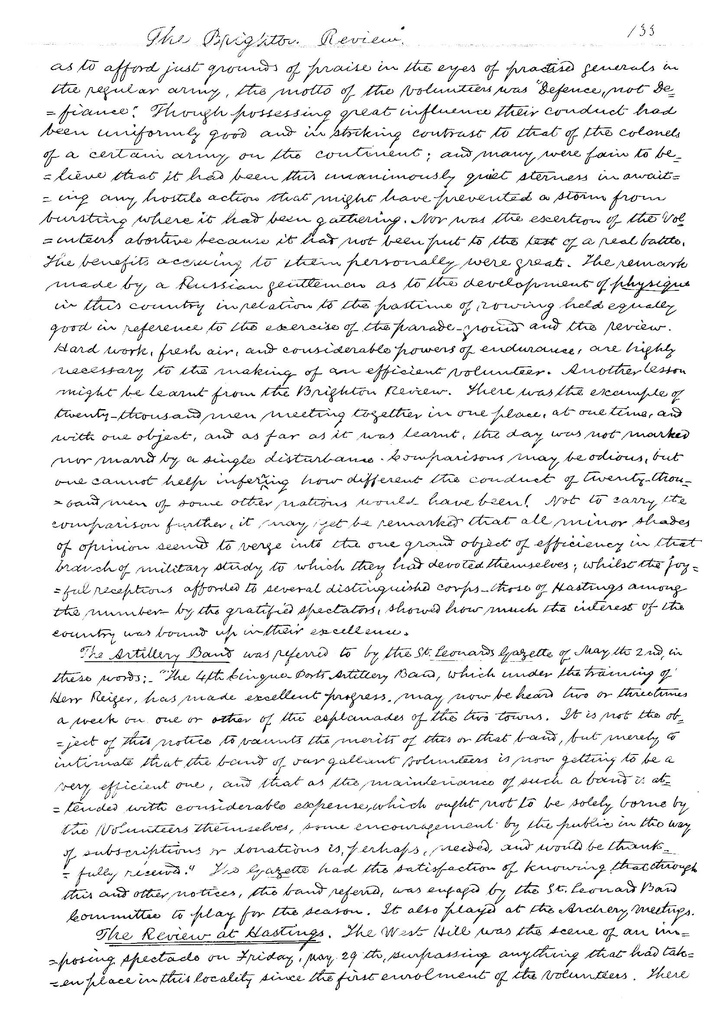 The Brighton Review. 133
as to afford just grounds of praise in the eyes of practised generals in
the regular army, the motto of the volunteers was "Defence, not De=
=fiance". Though possessing great influence their conduct had
been uniformly good and in striking contrast to that of the colonels
of a certain army on the continent; and many were fain to be=
=lieve that it had been this unanimously quiet sterness in await=
=ing any hostile action that might have prevented a storm from
bursting where it had been gathering. Nor was the exertion of the Vol=
=unteers abortive because it had not been put to the test of a real battle.
The benefits accruing to them personally were great. The remark
made by a Russian gentleman as to the development of physique
in this country in relation to the pastime of rowing held equally
good in reference to the exercise of the parade-ground and the review.
Hard work, fresh air, and considerable powers of endurance, are highly
necessary to the making of an efficient volunteer. Another lesson
might be learnt from the Brighton Review. There was the example of
twenty-thousand men meeting together in one place, at one time, and
with one object, and as far as it was learnt, the day was not marked
nor marred by a single disturbance. Comparisons may be odious, but
one cannot help infering how different the conduct of twenty-thou=
=sand men of some other nations would have been! Not to carry the
comparison further, it may yet be remarked that all minor shades
of opinion seemd to verge into the one grand object of efficiency in that
branch of military study to which they had devoted themselves; whilst the joy=
=ful receptions afforded to several distinguished corps-those of Hastings among
the number- by the gratified spectators, showed how much the interest of the
country was bound up in their excellence.
The Artillery Band was referred to by the St. Leonards Gazette of May the 2nd, in
these words:- "The 4th Cinque Ports Artillery Band, which under the training of
Herr Reiger, has made excellent progress, may now be heard two or three times
a week on one or other of the esplanades of the two towns. It is not the ob=
=ject of this notice to vaunts the merits of this or that band, but merely to
intimate that the band of our gallant volunteers is now getting to be a
very efficient one, and that as the maintenance of such a band is at=
=tended with considerable expense, which ought not to be solely borne by
the Volunteers themselves, some encouragement by the public in the way
of subscriptions or donations is, perhaps, needed, and would be thank=
=fully received." The Gazette had the satisfaction of knowing that through
this and other notices, the band referd, was engaged by the St. Leonard Band
Committee to play for the season. It also played at the Archery meetings.
The Review at Hastings. The West Hill was the scene of an im=
=posing spectacle on Friday, May 29th, surpassing anything that had tak=
=en place in this locality since the first enrolment of the volunteers. There